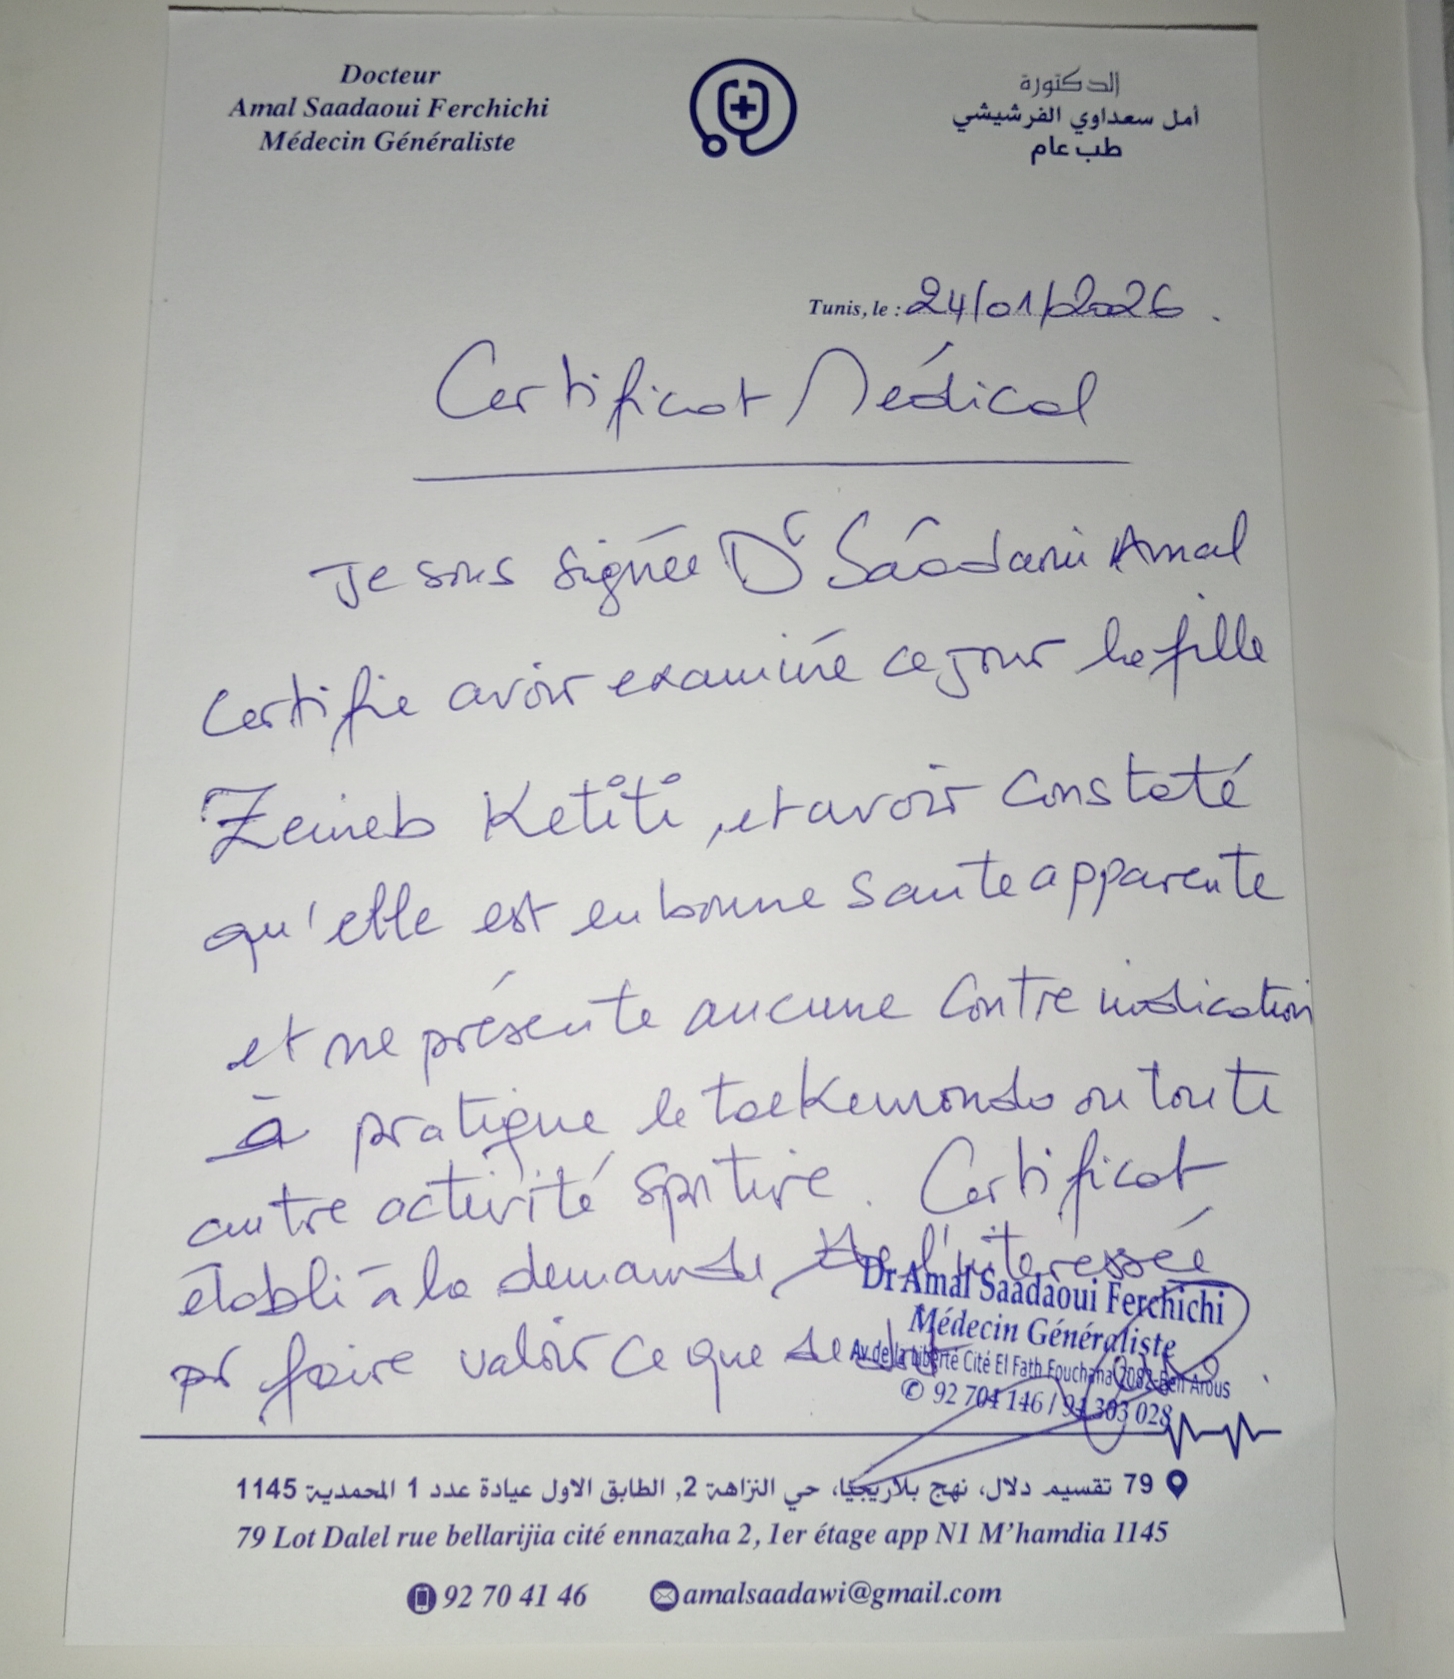 Docteur
Amal Saadaoui Ferchichi
Médecin Généraliste
الدكتورة
أمل سعداوي الفرشيشي
طب عام
Tunis, le : 24/01/2026.
Certificat Médical
Je sous signée Dr Saâdaoui Amal
Certifie avoir examiné ce jour la fille
Zeineb Ketiti, et avoir constaté
qu'elle est en bonne sante apparente
et ne présente aucune contre indication
à pratique le taekewondo ou toute
autre activité sportive. Certificat
établi à la demande de l'interessée
pr faire valoir ce que de droit
Dr Amal Saadaoui Ferchichi
Médecin Généraliste
Av de la Liberté Cité El Fath Fouchana 2082 Ben Arous
92 704 146 / 94 303 028
79 تقسيم دلال، نهج بلاريجيا، حي النزاهة 2, الطابق الاول عيادة عدد 1 المحمدية 1145
79 Lot Dalel rue bellarijia cité ennazaha 2, 1er étage app N1 M'hamdia 1145
92 70 41 46 amalsaadawi@gmail.com